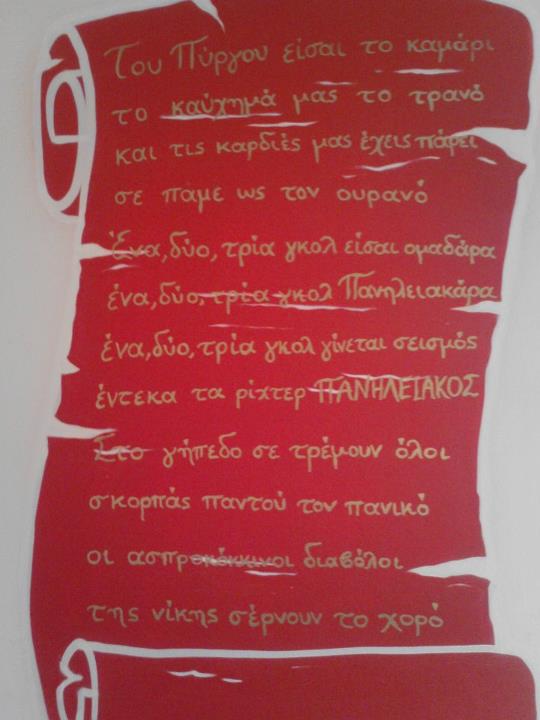 Του Πύργου είσαι το καμάρι
το καύχημά μας το τρανό
και τις καρδιές μας έχεις πάρει
σε πάμε ως τον ουρανό
Ένα, δύο, τρία γκολ είσαι ομαδάρα
ένα, δύο, τρία γκολ Πανηλειακάρα
ένα, δύο, τρία γκολ γίνεται σεισμός
έντεκα τα ρίχτερ ΠΑΝΗΛΕΙΑΚΟΣ
Στο γήπεδο σε τρέμουν όλοι
σκορπάς παντού τον πανικό
οι ασπροκόκκινοι διαβόλοι
της νίκης σέρνουν το χορό